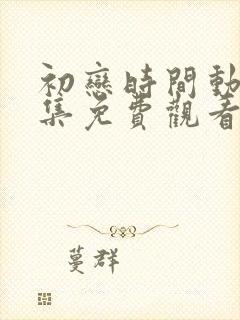 初戀時間動
集免費觀看
蔓群